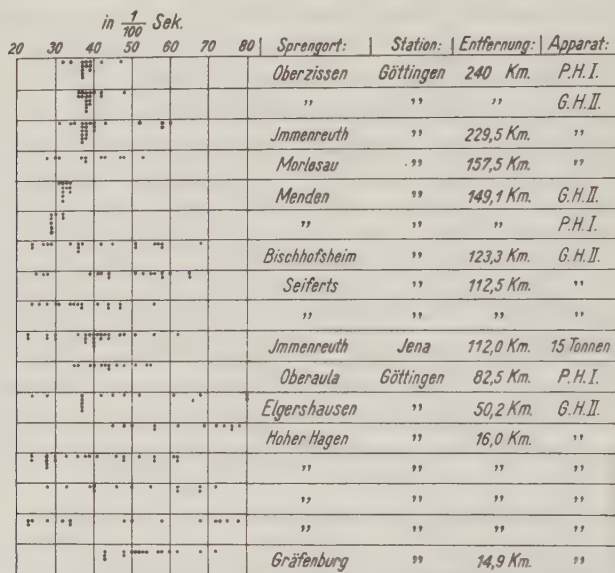 in 1/100 Sek.
20 30 40 50 60 70 80 Sprengort: Station: Entfernung: Apparat:
Oberzissen Göttingen 240 Km. P.H.I.
" " " G.H.II.
Jmmenreuth " 229,5 Km. "
Morlesau " 157,5 Km. "
Menden " 149,1 Km. G.H.II.
" " " P.H.I.
Bischhofsheim " 123,3 Km. G.H.II.
Seiferts " 112,5 Km. "
" " " "
Jmmenreuth Jena 112,0 Km. 15 Tonnen
Oberaula Göttingen 82,5 Km. P.H.I.
Elgershausen " 50,2 Km. G.H.II.
Hoher Hagen " 16,0 Km. "
" " " "
" " " "
" " " "
Gräfenburg " 14,9 Km. "